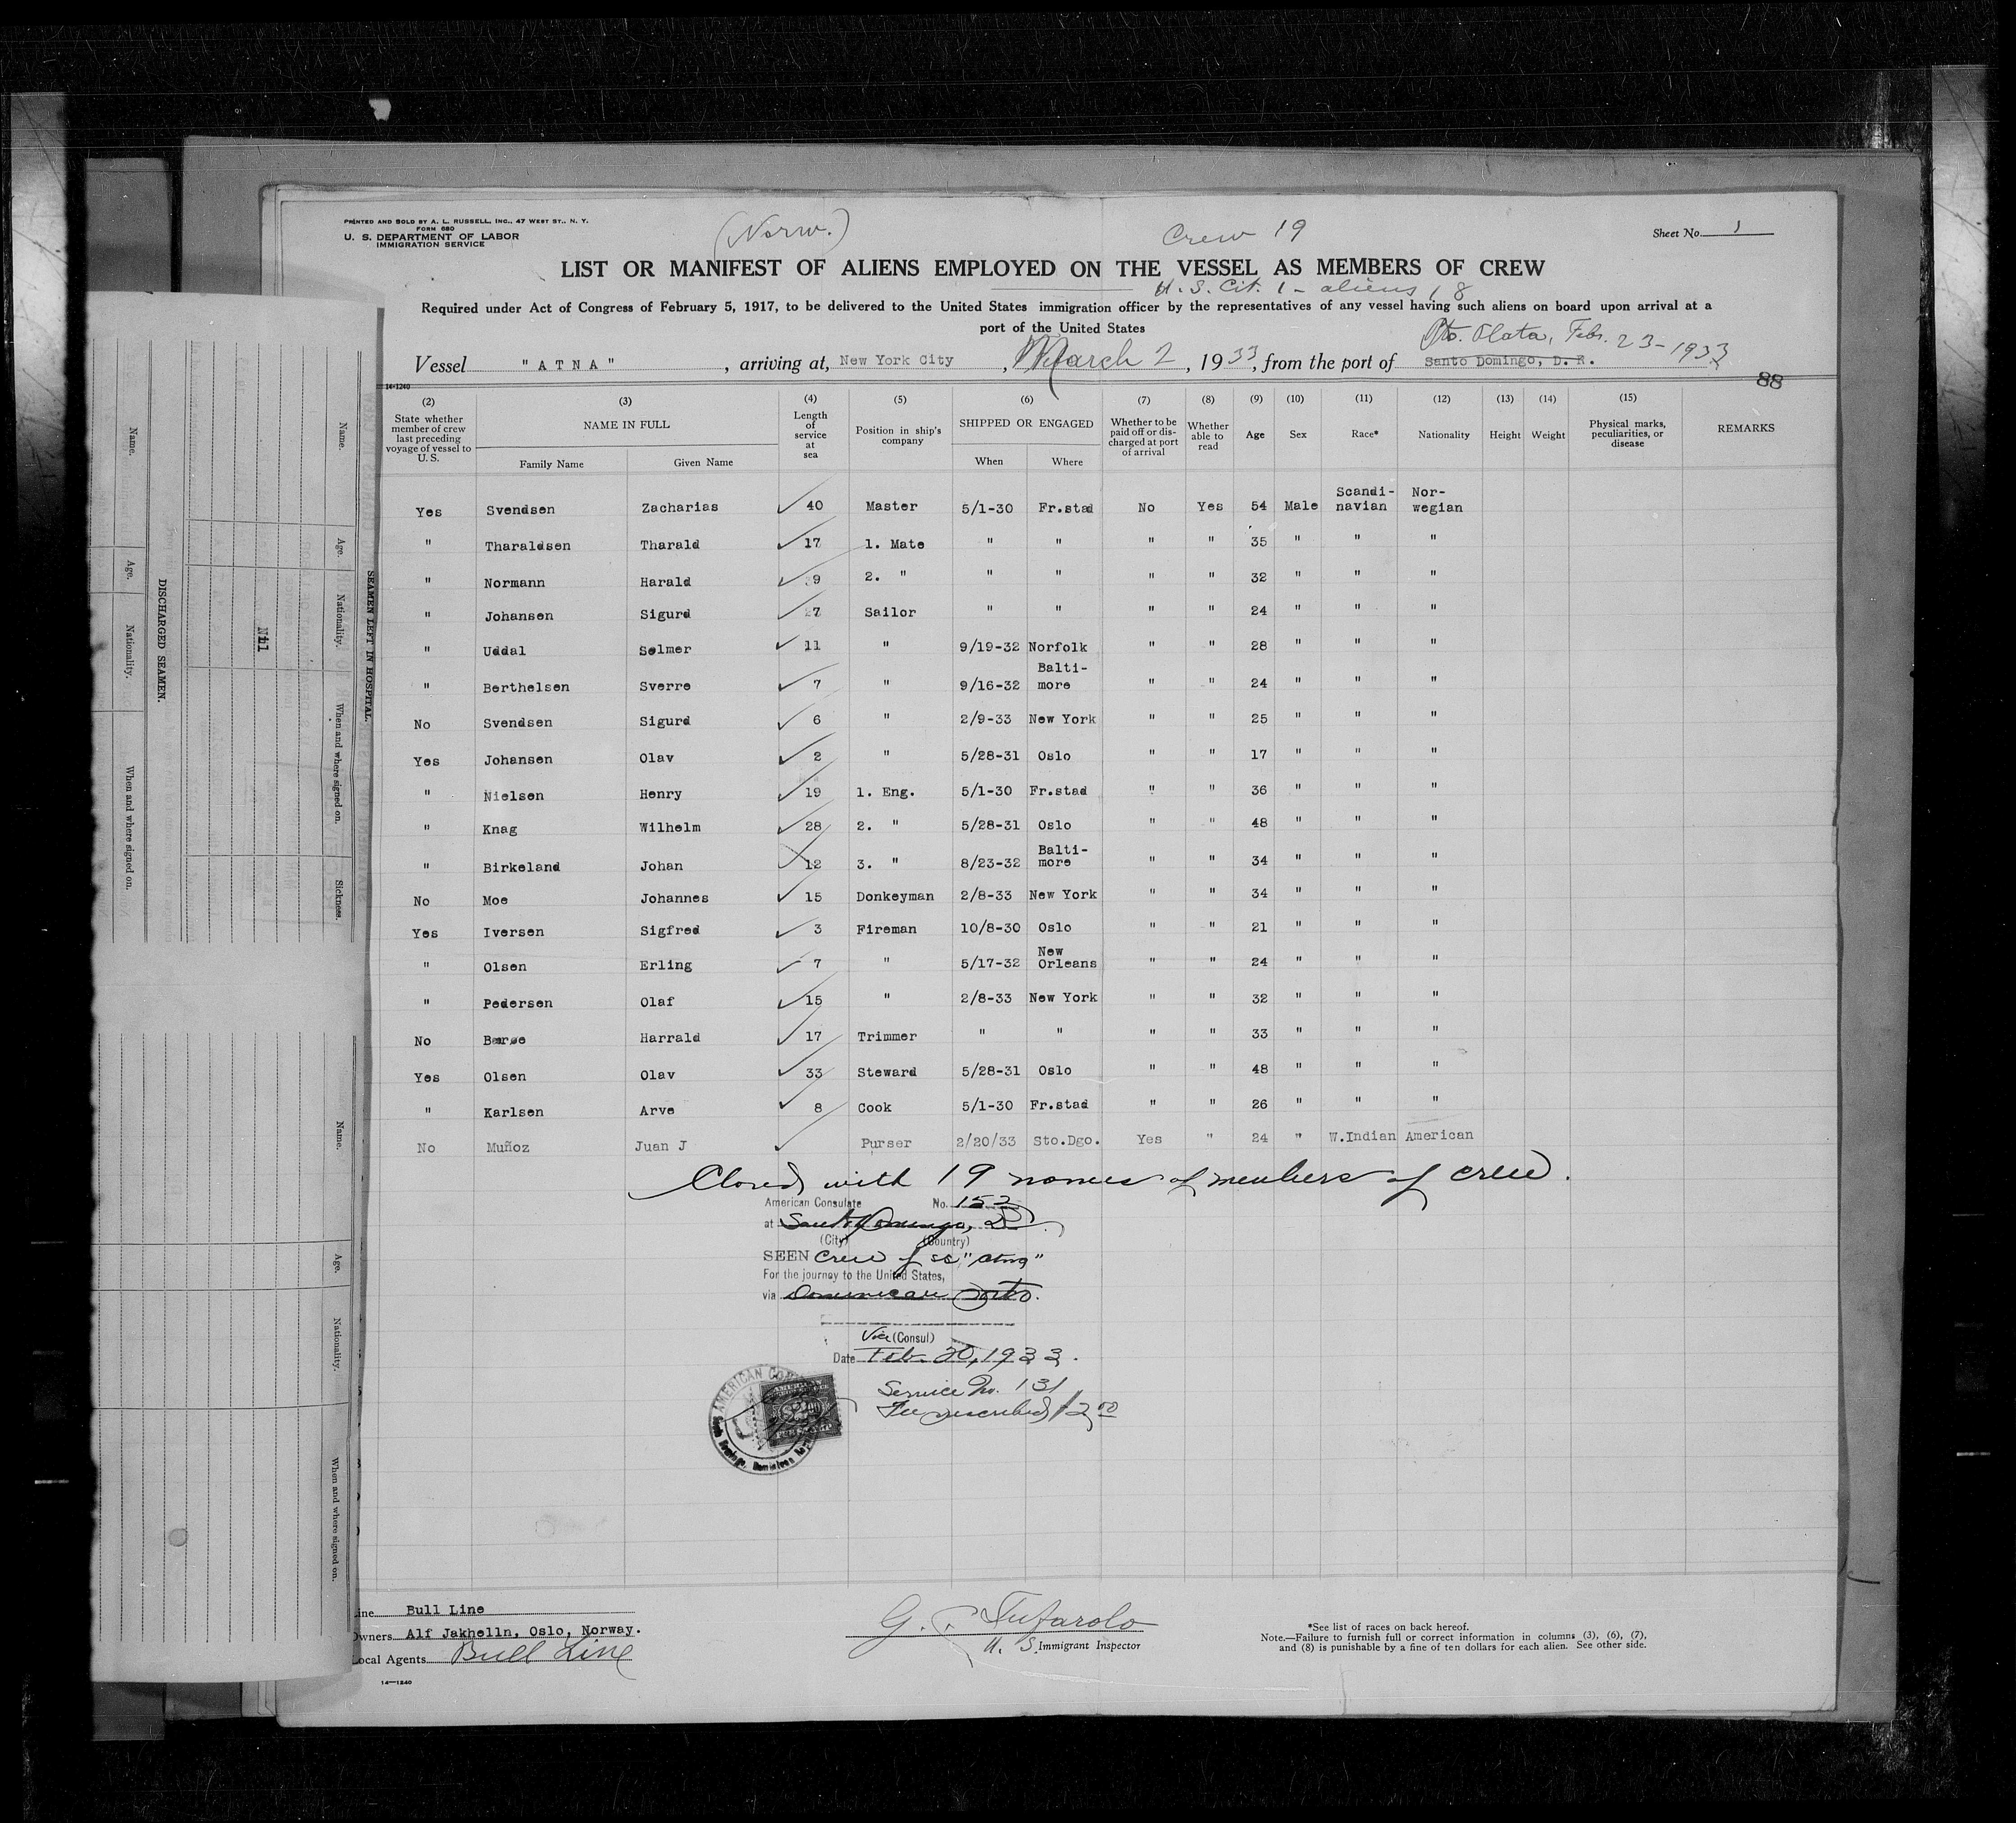 PRINTED AND SOLD BY A. L. RUSSELL, INC., 47 WEST ST., N. Y.
FORM 680
U. S. DEPARTMENT OF LABOR
IMMIGRATION SERVICE
(Norw.)
Crew 19
Sheet No. 1
LIST OR MANIFEST OF ALIENS EMPLOYED ON THE VESSEL AS MEMBERS OF CREW
U. S. Cit. 1 - aliens 18
Required under Act of Congress of February 5, 1917, to be delivered to the United States immigration officer by the representatives of any vessel having such aliens on board upon arrival at a
port of the United States
Pto. Plata, Feb. 23-1933
Vessel "ATNA", arriving at, New York City, March 2, 1933, from the port of Santo Domingo, D. R.
88
14-1240
(2) (3) (4) (5) (6) (7) (8) (9) (10) (11) (12) (13) (14) (15)
State whether member of crew last preceding voyage of vessel to U. S. NAME IN FULL Family Name Given Name Length of service at sea Position in ship's company SHIPPED OR ENGAGED When Where Whether to be paid off or discharged at port of arrival Whether able to read Age Sex Race* Nationality Height Weight Physical marks, peculiarities, or disease REMARKS
Yes Svendsen Zacharias 40 Master 5/1-30 Fr.stad No Yes 54 Male Scandi-navian Nor-wegian
" Tharaldsen Tharald 17 1. Mate " " " " 35 " " "
" Normann Harald 9 2. " " " " " 32 " " "
" Johansen Sigurd 7 Sailor " " " " 24 " " "
" Uddal Selmer 11 " 9/19-32 Norfolk " " 28 " " "
" Berthelsen Sverre 7 " 9/16-32 Balti-more " " 24 " " "
No Svendsen Sigurd 6 " 2/9-33 New York " " 25 " " "
Yes Johansen Olav 2 " 5/28-31 Oslo " " 17 " " "
" Nielsen Henry 19 1. Eng. 5/1-30 Fr.stad " " 36 " " "
" Knag Wilhelm 28 2. " 5/28-31 Oslo " " 48 " " "
" Birkeland Johan 12 3. " 8/23-32 Balti-more " " 34 " " "
No Moe Johannes 15 Donkeyman 2/8-33 New York " " 34 " " "
Yes Iversen Sigfred 3 Fireman 10/8-30 Oslo " " 21 " " "
" Olsen Erling 7 " 5/17-32 New Orleans " " 24 " " "
" Pedersen Olaf 15 " 2/8-33 New York " " 32 " " "
No Barøe Harrald 17 Trimmer " " " " 33 " " "
Yes Olsen Olav 33 Steward 5/28-31 Oslo " " 48 " " "
" Karlsen Arve 8 Cook 5/1-30 Fr.stad " " 26 " " "
No Muñoz Juan J Purser 2/20/33 Sto.Dgo. Yes " 24 " W.Indian American
Closed with 19 names of members of crew.
American Consulate No. 152
at Santo Domingo, D
(City) (Country)
SEEN Crew of ss "Atna"
For the journey to the United States,
via Dominican Ports.
Vice (Consul)
Date Feb. 20, 1933.
Service No. 131
Fee prescribed $2 00
AMERICAN CO
Santo Domingo, Dominican
Line Bull Line
Owners Alf Jakhelln, Oslo, Norway.
Local Agents Bull Line
14-1240
G. Tufarolo
U. S. Immigrant Inspector
*See list of races on back hereof.
Note.—Failure to furnish full or correct information in columns (3), (6), (7),
and (8) is punishable by a fine of ten dollars for each alien. See other side.
SEAMEN LEFT IN HOSPITAL.
Name. Age. Nationality. When and where signed on. Sickness.
Nil
DISCHARGED SEAMEN.
Name. Age. Nationality. When and where signed on.
Name. Age. Nationality. When and where signed on.